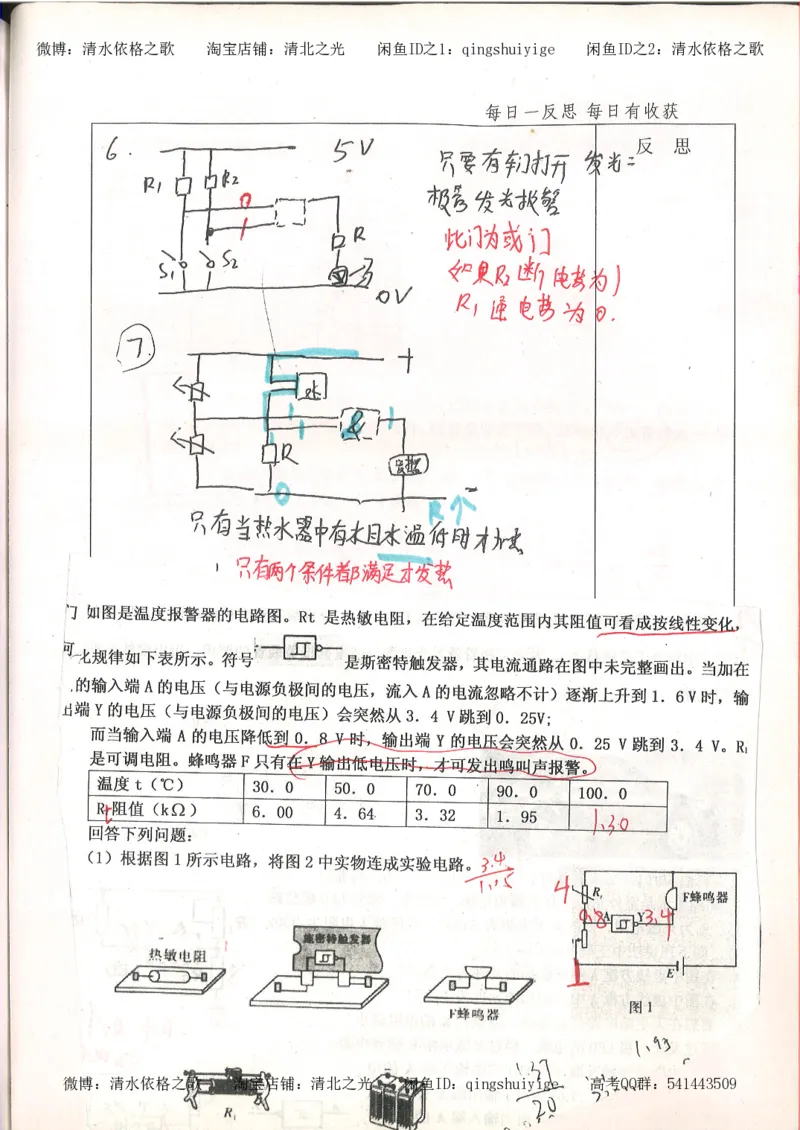 微博：清水依格之歌 淘宝店铺：清北之光 闲鱼ID之1：qingshuiyige 闲鱼ID之2：清水依格之歌
每日一反思 每日有收获
反 思
6. 5V
R1 R2
只要有车门打开 发光二
极管发光报警
此门为或门
如果R2断 电势为1
R1通 电势为0.
0
1
R
S1 S2
0V
7.
+
水
1
1
&
1
R
0
R↑
-
只有当热水器中有水且水温低时才
只有两个条件都满足才发热
门 如图是温度报警器的电路图。Rt 是热敏电阻，在给定温度范围内其阻值可看成按线性变化，
化规律如下表所示。符号 是斯密特触发器，其电流通路在图中未完整画出。当加在
的输入端 A 的电压（与电源负极间的电压，流入 A 的电流忽略不计）逐渐上升到 1. 6V 时，输
出端 Y 的电压（与电源负极间的电压）会突然从 3. 4 V 跳到 0. 25V;
而当输入端 A 的电压降低到 0. 8 V 时，输出端 Y 的电压会突然从 0. 25 V 跳到 3. 4 V。R1
是可调电阻。蜂鸣器 F 只有在 Y 输出低电压时，才可发出鸣叫声报警。
温度 t（℃） 30. 0 50. 0 70. 0 90. 0 100. 0
Rt阻值（kΩ） 6. 00 4. 64 3. 32 1. 95 1.30
回答下列问题：
（1）根据图 1 所示电路，将图 2 中实物连成实验电路。
3.4
1.15
4 R1 F蜂鸣器
0.8 A Y 3.4
1
E
图 1
热敏电阻
施密特触发器
F蜂鸣器
1.95
137
20
微博：清水依格之歌 淘宝店铺：清北之光 闲鱼ID：qingshuiyige 高考QQ群：541443509
R1